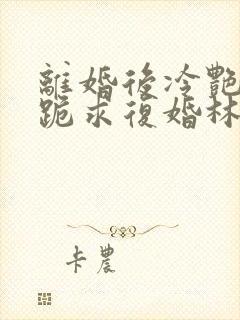 離婚後冷艷
跪求復婚林
卡農